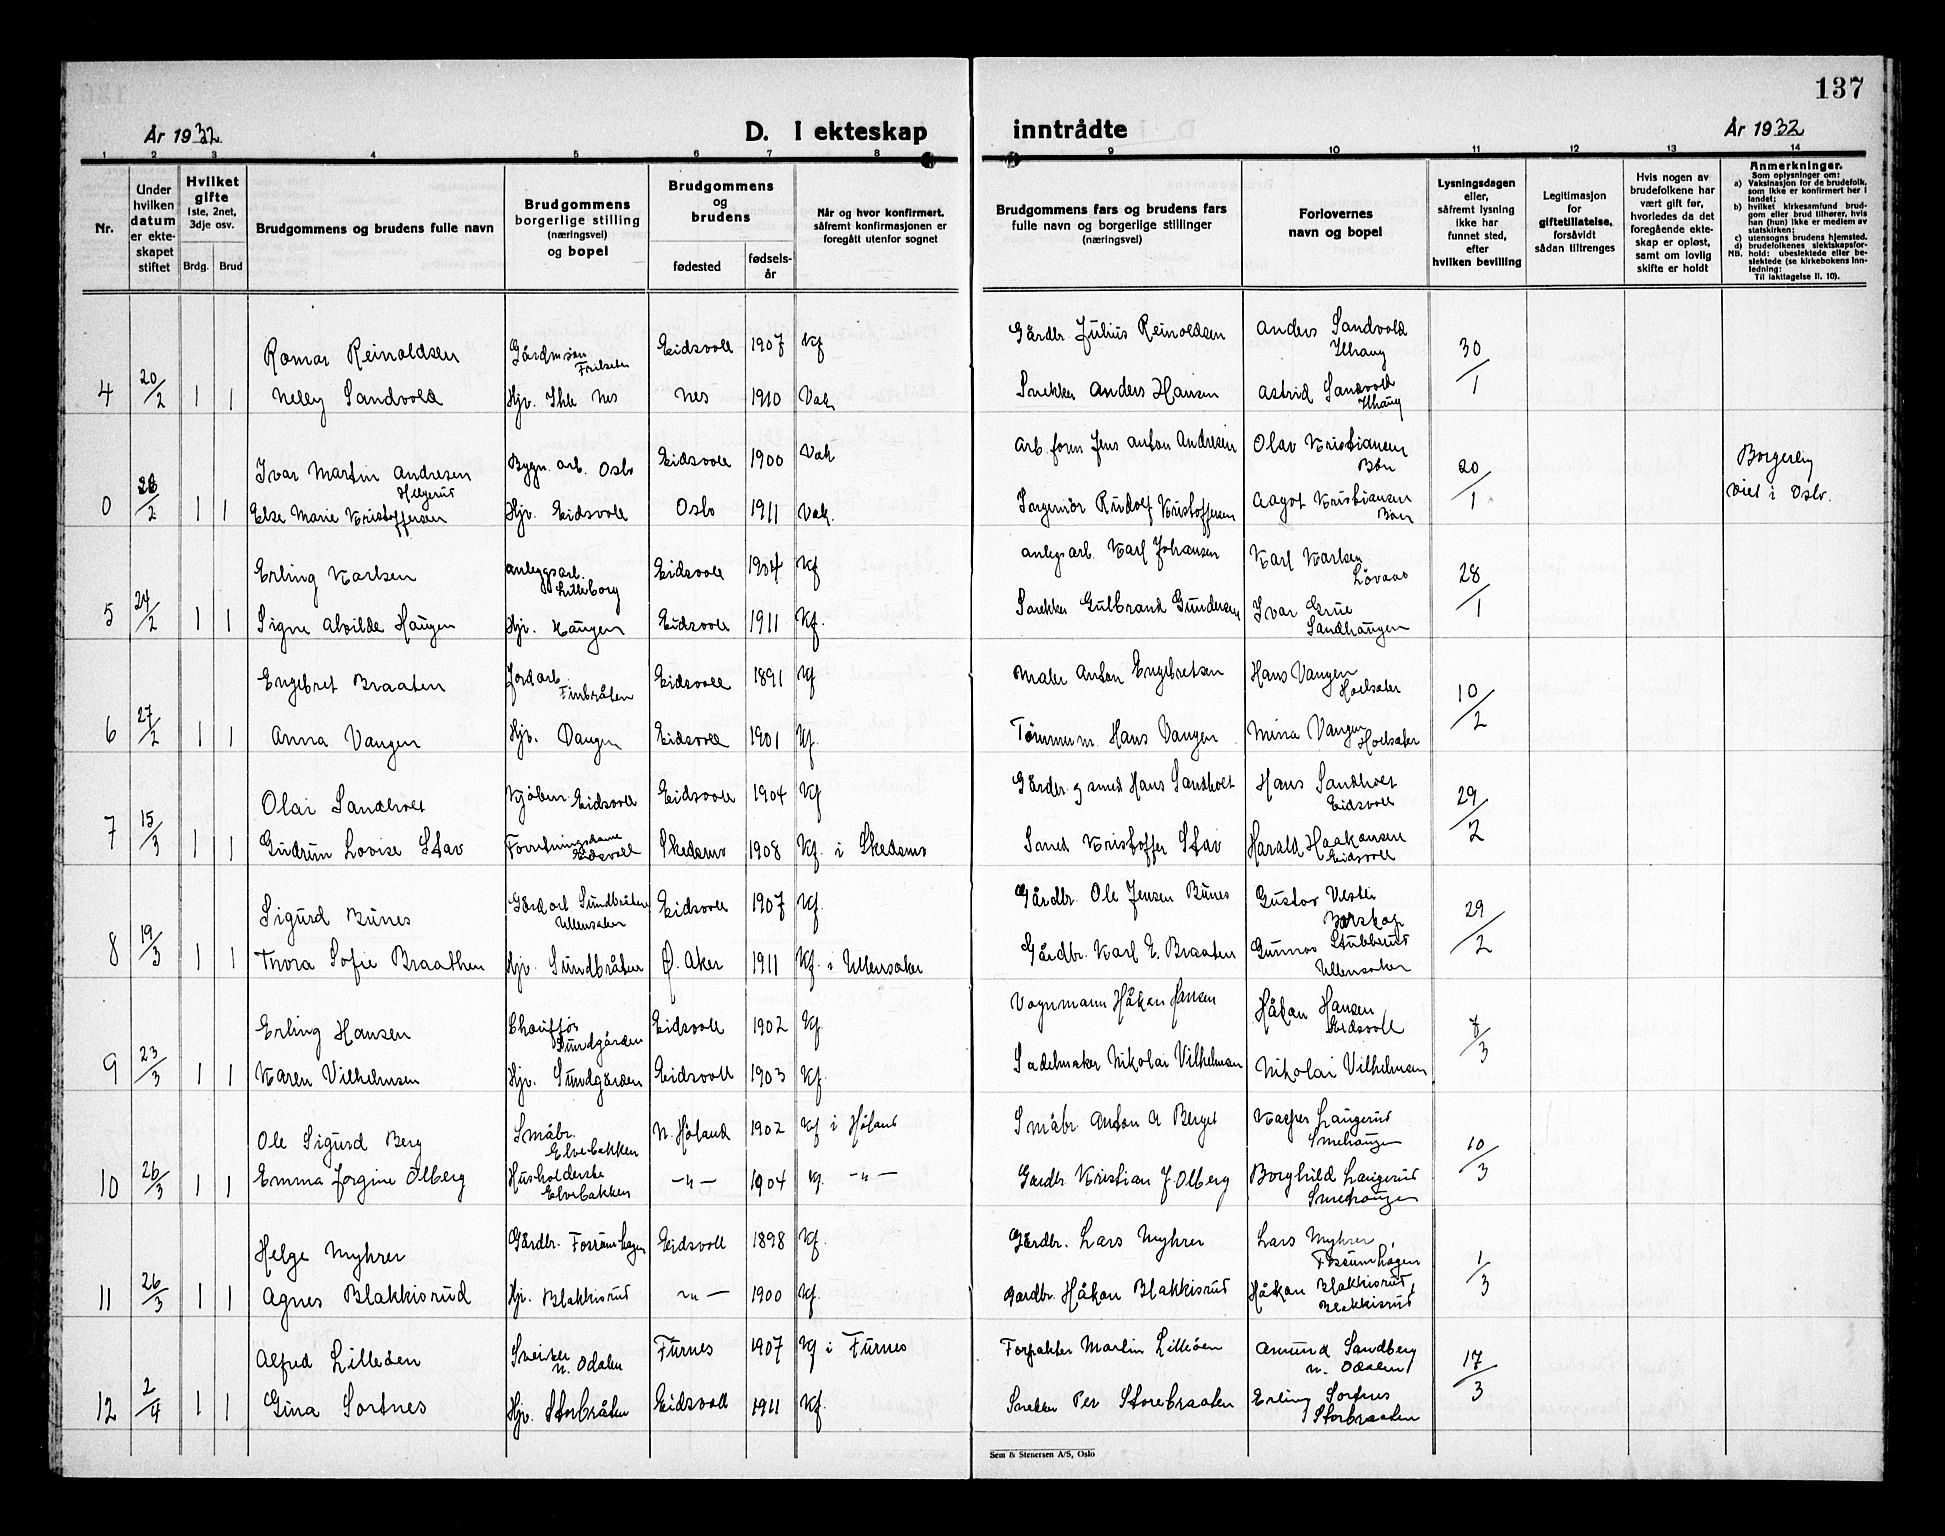 137
År 1932
D. I ekteskap
inntrådte
År 1932
1 2 3 4 5 6 7 8
9 10 11 12 13 14
Nr.
Under
hvilken
datum
er ekte-
skapet
stiftet
Hvilket
gifte
1ste, 2net,
3dje osv.
Brdg.
Brud
Brudgommens og brudens fulle navn
Brudgommens
borgerlige stilling
(næringsvei)
og bopel
Brudgommens
og
brudens
fødested
fødsels-
år
Når og hvor konfirmert,
såfremt konfirmasjonen er
foregått utenfor sognet
Brudgommens fars og brudens fars
fulle navn og borgerlige stillinger
(næringsvei)
Forlovernes
navn og bopel
Lysningsdagen
eller,
såfremt lysning
ikke har
funnet sted,
efter
hvilken bevilling
Legitimasjon
for
giftetillatelse,
forsåvidt
sådan tiltrenges
Hvis nogen av
brudefolkene har
vært gift før,
hvorledes da det
foregående ekte-
skap er opløst,
samt om lovlig
skifte er holdt
Anmerkninger.
Som oplysninger om:
a) Vaksinasjon for de brudefolk,
som ikke er konfirmert her i
landet;
b) hvilket kirkesamfund brud-
gom eller brud tilhører, hvis
han (hun) ikke er medlem av
statskirken;
c) utensogns brudens hjemsted.
d) brudefolkenes slektskapsfor-
NB. hold: ubeslektede eller be-
slektede (se kirkebokens inn-
ledning:
Til iakttagelse II. 10).
Romar Reinoldsen Gårdm.søn Eidsvoll 1907 Kf Gårdbr. Julius Reinoldsen Anders Sandvold
4 20/2 1 1 Nelly Sandvold Hjv. Ihle Nes Nes 1910 Vak Snekker Anders Hansen Astrid Sandvold 30/1
Ivar Martin Andresen Bygn. arb. Oslo Eidsvoll 1900 Vak Arb. form Jens Anton Andresen Olav Kristiansen
Helgerud Bøn
0 28/2 1 1 Else Marie Kristoffersen Hjv. Eidsvoll Oslo 1911 Vak. Ingeniør Rudolf Kristoffersen Aagot Kristiansen 20/1 Borgerlig
Bøn viet i Oslo.
Erling Karlsen Anleggsarb. Eidsvoll 1904 Kf Anlegsarb. Karl Johansen Karl Karlsen
Litleborg Lövaas
5 24/2 1 1 Signe Alvilde Haugen Hjv. Haugen Eidsvoll 1911 Kf. Snekker Gulbrand Gundersen Ivar Grue 28/1
Sandhaugen
Engebret Braaten Jordarb. Eidsvoll 1891 Kf Maler Anton Engebretsen Hans Vangen
Finbråten Hoelsæter
6 27/2 1 1 Anna Vangen Hjv. Vangen Eidsvoll 1901 Kf. Tømmerm. Hans Vangen Mina Vangen 10/2
Hoelsæter
Olai Sandholt Kjøbm. Eidsvoll Eidsvoll 1904 Kf Gårdbr. g smed Hans Sandholt Hans Sandholt
Eidsvoll
7 15/3 1 1 Gudrun Lovise Stav Forretningsdame Skedsmo 1908 Kf. i Skedsmo Smed Kristoffer Stav Harald Haakonsen 29/2
Eidsvoll Eidsvoll
Sigurd Bunes Gårdarb Sundbråten Eidsvoll 1907 Kf. Gårdbr. Ole Jensen Bunes Gustav Vestli
Ullensaker
8 19/3 1 1 Thora Sofie Braathen Hjv. Sundbråten Ø. Aker 1911 Kf. i Ullensaker Gårdbr. Karl E. Braaten Gunnar Stubberud 29/2
Ullensaker
Erling Hansen Chauffør Eidsvoll 1902 Kf. Vognmann Håkon Hansen Håkon Hansen
Sundgården Eidsvoll
9 23/3 1 1 Karen Vilhelmsen Hjv. Sundgården Eidsvoll 1903 Kf. Sadelmaker Nikolai Vilhelmsen Nikolai Vilhelmsen 7/3
Ole Sigurd Berg Småbr. N. Høland 1902 Kf i Høland Småbr. Anton A Berget Kasper Langerud
Elvebakken Smehaugen
10 26/3 1 1 Emma Jørgine Olberg Husholderske —"— 1904 Kf. —"— Gardbr Kristian J. Olberg Borghild Langerud 10/3
Elvebakken Smehaugen
Helge Myhrer Gårdbr. Fossumhagen Eidsvoll 1898 Kf. Gårdbr. Lars Myhrer Lars Myhrer,
Fossumhagen
11 26/3 1 1 Agnes Blakkisrud Hjv. Blakkisrud —"— 1900 Kf. Gardbr. Håkon Blakkisrud Håkon Blakkisrud, 1/3
Blakkisrud
Alfred Lilleøen Sveiser Furnes 1907 Kf i Furnes Forpakter Martin Lilleøen Amund Sandberg
N. Odalen N. Odalen
12 2/4 1 1 Gina Sortnes Hjv. Storbråten Eidsvoll 1911 Kf. Snekker Per Storebraaten Erling Sortnes 17/3
Storbraaten
Sem & Stenersen A/S, Oslo